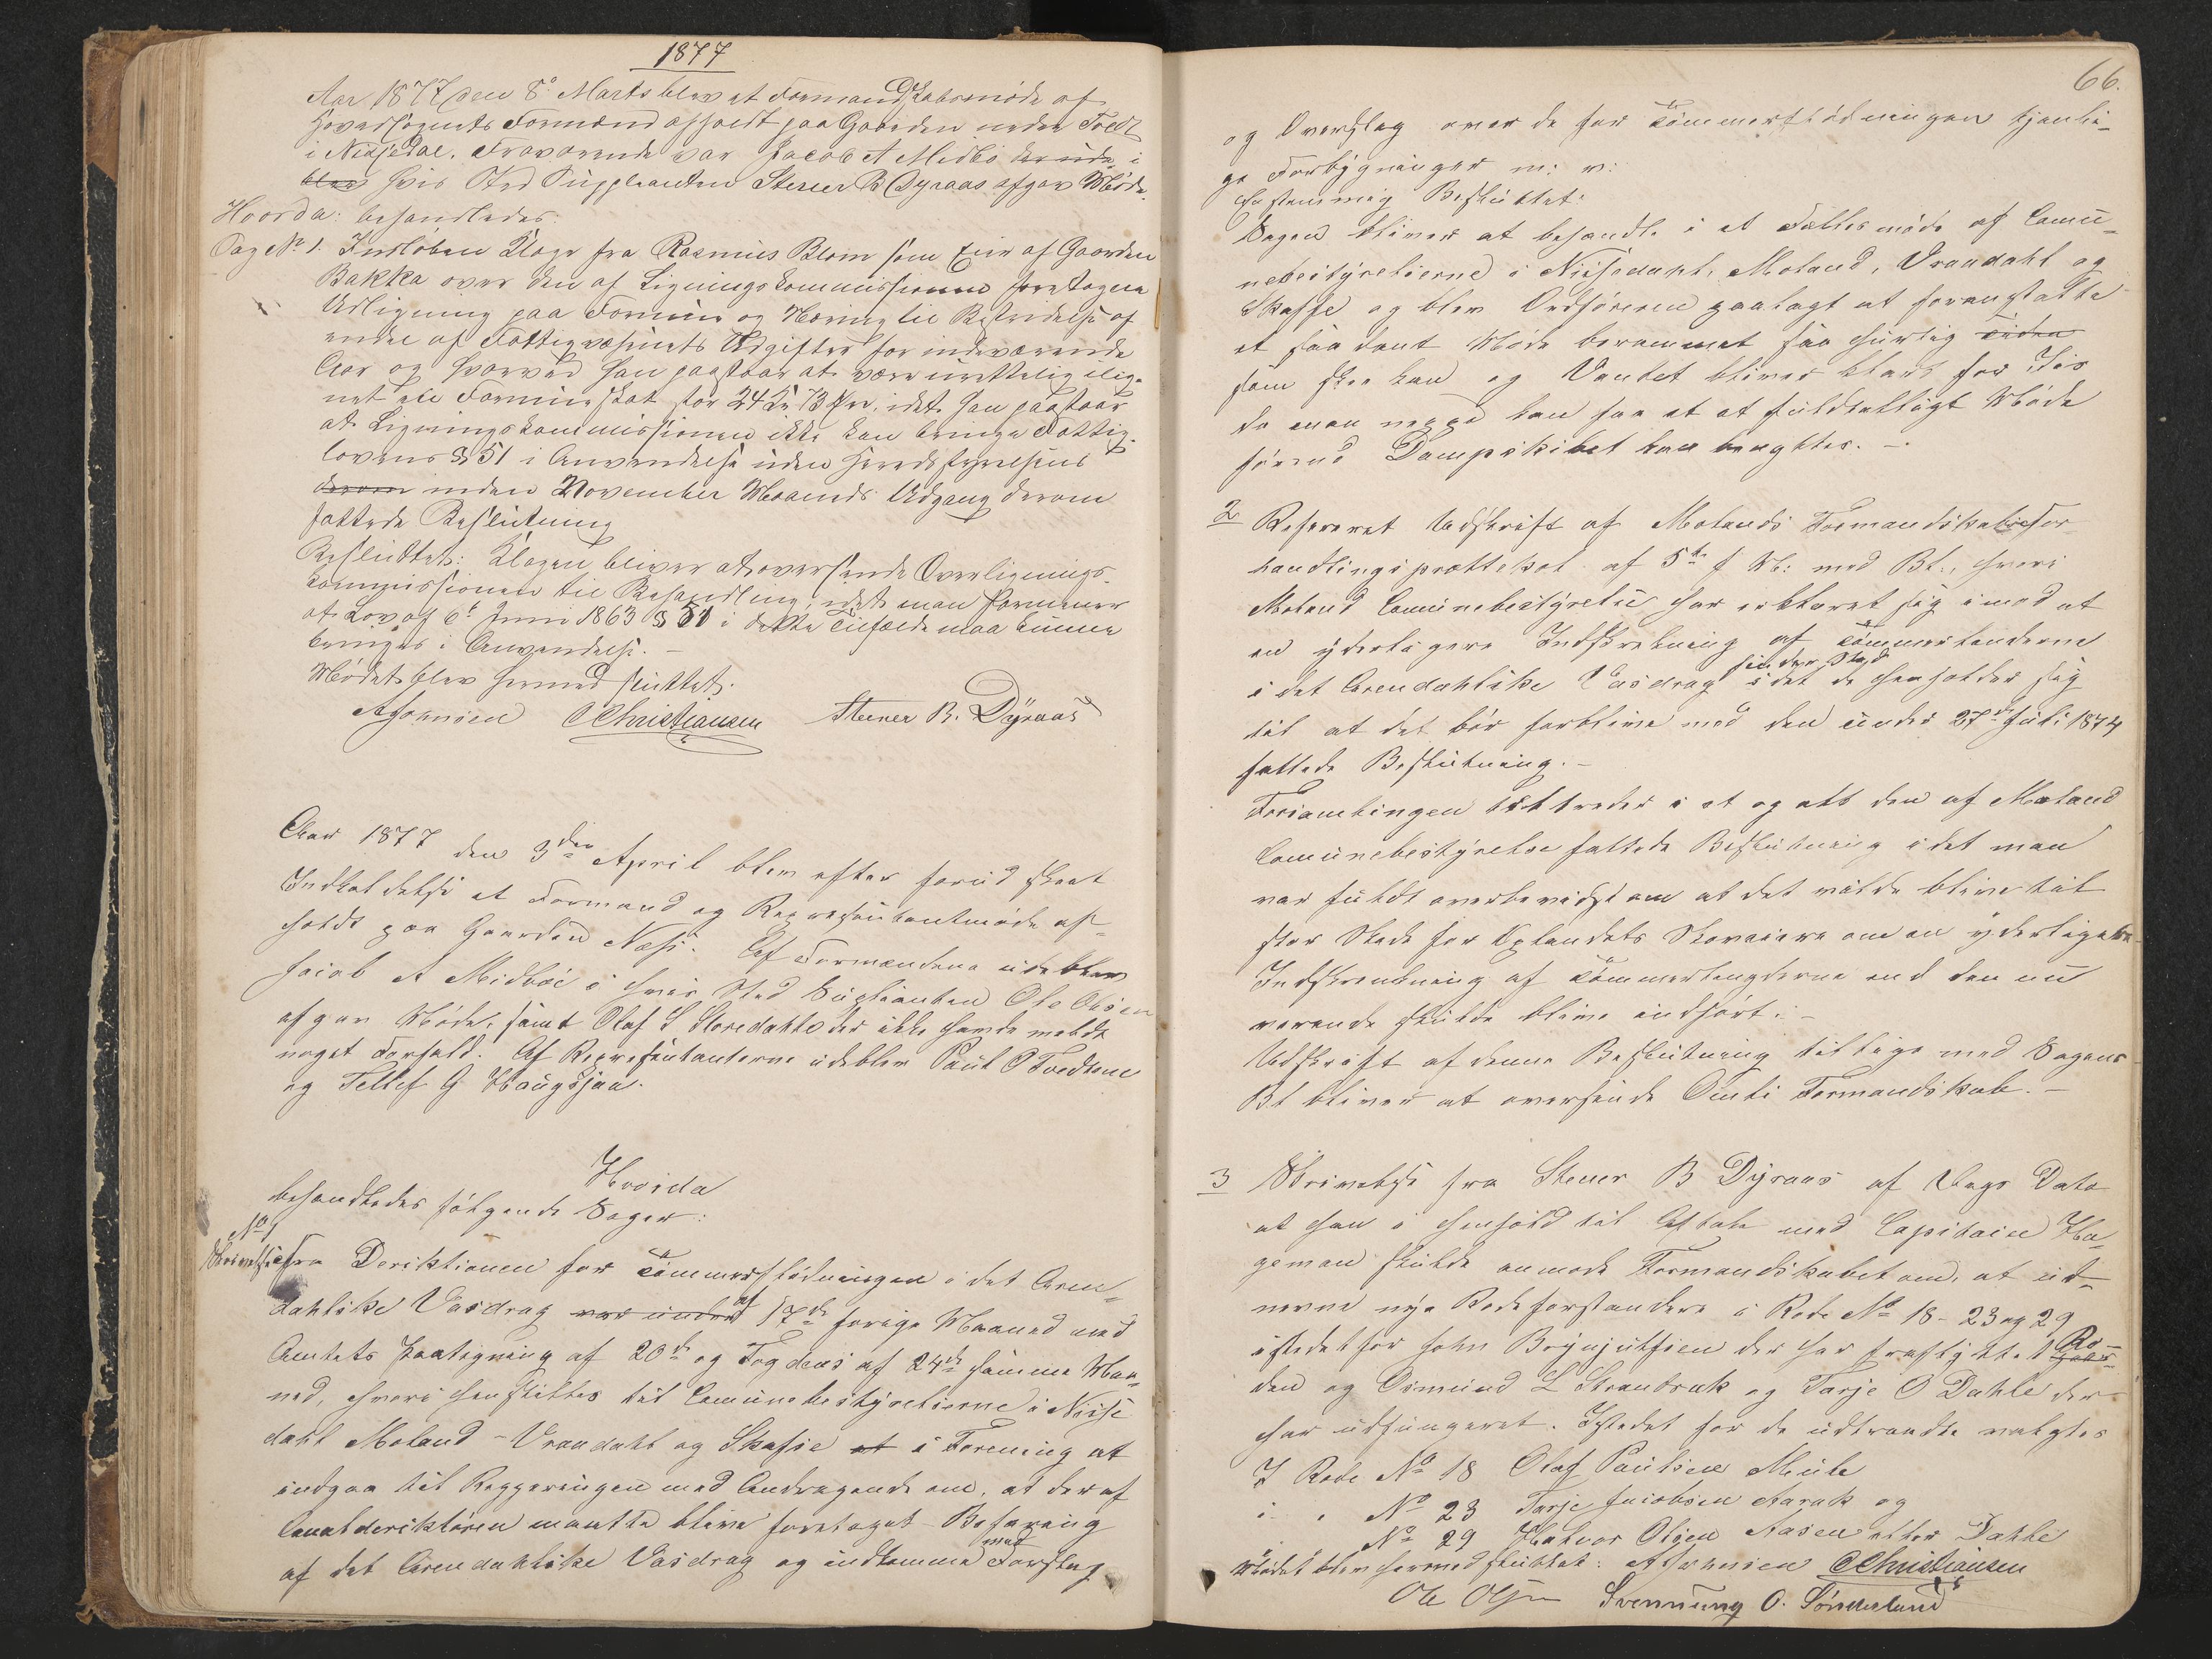 1877
Aar 1877 den 8de Marts blev et Formandskabsmøde af
Hovedsognets Formænd afholdt paa Gaarden nedre Tvedt
i Nissedal. Fraværende var Jacob A Midbö der ude i
blev hvis Sted Suppleanten Stener B Dyraas afgav Møde.
Hvorda: behandledes:
Sag No 1. Indløben Klage fra Rasmus Blom som Eier af Gaarden
Bakka over den af Ligningskommissionen foretagne
Udligning paa Formue og Næring til Bestridelse af
endel af Fattigvæsenets Udgifter for indeværende
Aar og hvorved han paastaar at være urettelig ilig-
net ale Formueskat stor 24 Kr. 73 Øre, idet han paastaar
at Ligningskommissionen ikke kan bringe Fattig-
lovens § 51 i Anvendelse uden Heredsstyrelsens
derom inden November Maaneds Udgang derom
fattede Beslutning
Besluttet: Klagen bliver at oversende Overlignings-
kommissionen til Behandling, idet man formener
at Lov af 6te Juni 1863 § 51 i dette Tilfælde maa kunne
bringes i Anvendelse. –
Mødet blev hermed sluttet.
AJohnsen CChristiansen Stener B. Dÿraas
Aar 1877 den 3die April blev efter forud skeet
Indkaldelse et Formand og Repræsentantmøde af-
holdt paa Gaarden Næs. Af Formændene udeblev
Jacob A Midböe i hvis Sted Suplianten Ole Olsen
afgav Møde, samt Olaf S Storedahle der ikke havde meldt
noget Forfald. Af Repræsentanterne udeblev Paul O Tvedtene
og Tellef G Haugsjaa.
Hvorda
behandledes følgende Sager:
No 1
Skrivelse fra Deriktionen for Tömmerflødningen i det Aren-
dahlske Vasdrag var under af 17de forrige Maaned med
Amtets Paategning af 20de og Fogdens af 24de samme Maa-
ned, hvori henstilles til Comunebestyrelserne i Nisse
dahl Moland – Vraadahl og Skafse at i Forening at
indgaa til Reggeringen med Andragende om, at der af
Canalderiktøren maatte blive foretaget Befaring
af det Arendahlske Vasdrag og indkomme med Forslag
66.
og Overslag over de for Tömmerflødningen tjenli-
ge Forbygninger m: v:
Enstemmig Besluttet:
Sagen bliver at behandle i et Fællesmøde af Comu-
nebestyrelserne i Nissedahl, Moland, Vraadahl og
Skafse og blev Ordføreren paalagt at foranstalte
et saadant Møde berammet saa hurtig siden
som skee kan og Vandet bliver klart for Iis
da man neppe kan faa et at fuldtalligt Møde
førend Dampskibet kan benyttes. –
2 Refereret Udskrift af Molands Formandskabsfor
handlingsprottekol af 5te f M: med Bl., hvori
Moland Comunebestyrelse har erklæret sig imod at
en yderligere Indskrænkning af Tömmerlængderne
i det Arendahlske Vasdrag finder Sted idet de henholder sig
til at det bör forblive med den under 27de Juli 1874
fattede Beslutning. –
Forsamlingen tiltræder i et og alt den af Moland
Comunebestyrelse fattede Beslutning idet man
var fuldt overbevidst om at det vilde blive til
stor Skade for Oplandets Skoveiere om en yderligere
Indskrænkning af Tömmerlengderne end den nu
værende skulde blive indført. –
Udskrift af denne Beslutning tillige med Sagens
Bl bliver at oversende Omli Formandskab. –
3 Skrivelse fra Stener B Dÿraas af Dags Dato
at han i Henhold til Aftale med Capitain Ha-
geman skulde anmode Formandskabet om, at ud-
nevne nye Rodeforstandere i Rode No 18 – 23 og 29
istedet for John Brynjulfsen der har fraflyttet Ro-
den og Osmund L Strandvik og Tarje O Dahle der
har udfungeret. Istedet for de udtraadte valgtes
I Rode No 18 Olaf Paulsen Mule
i " No 23 Tarje Jacobsen Aarak og
" No 29 Halvor Olsen Aasen eller Dahle
Mødet blev hermed sluttet: AJohnsen CChristiansen
Ole Olsen Svennung O. Sönderland